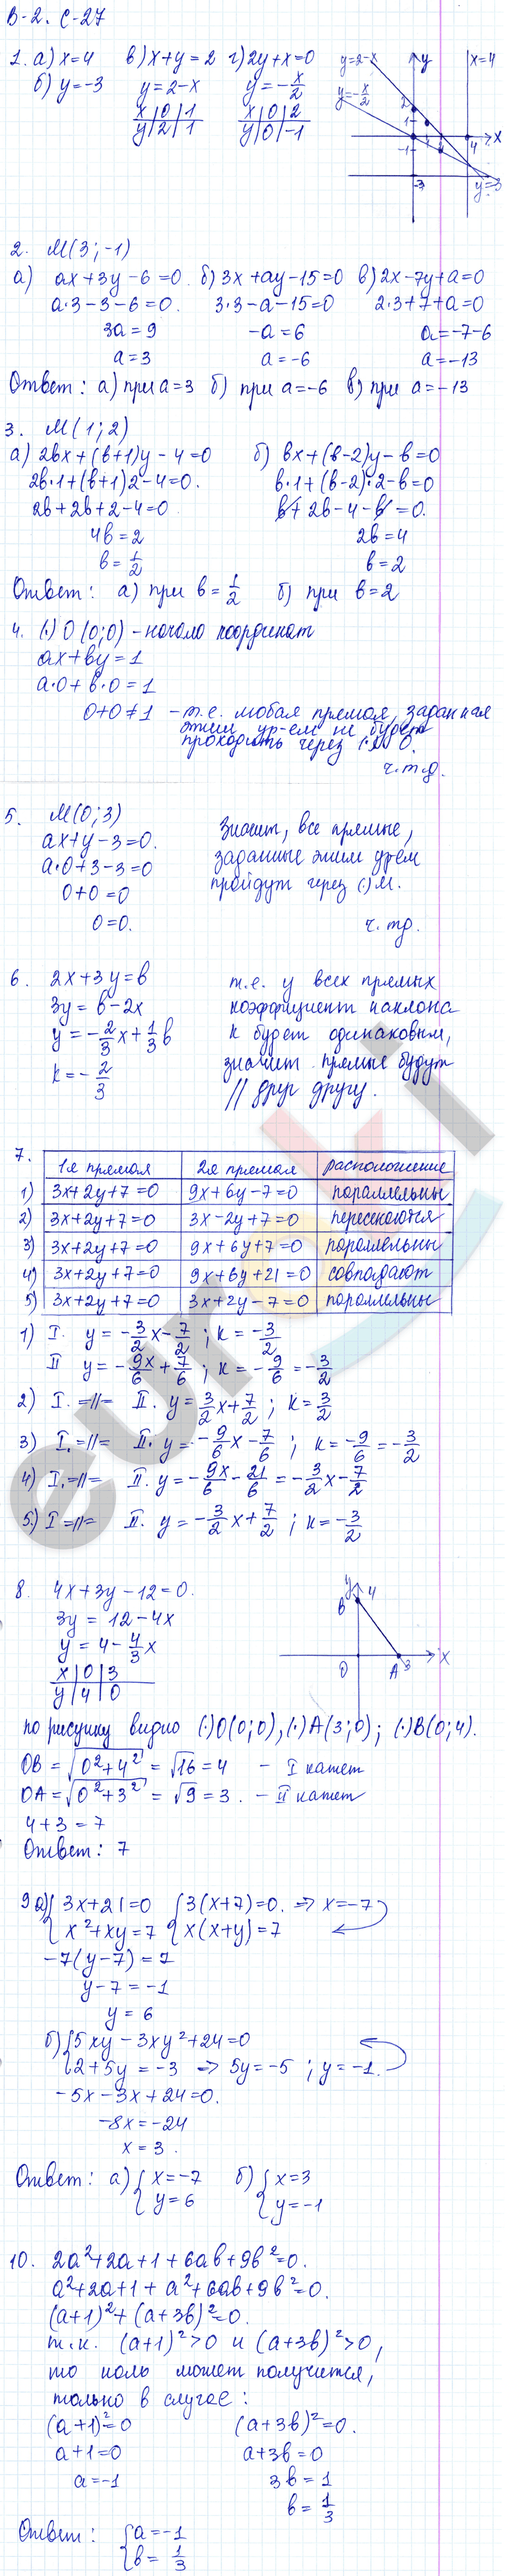 В-2. С-27
1. а) x=4   в) x+y=2   г) 2y+x=0
б) y=-3   y=2-x   y=-x/2
x|0|1   x|0|2
y|2|1   y|0|-1
y=2-x   y   x=4
y=-x/2
2
1
4   x
-1
-3   y=3
2. М(3;-1)
а) ax+3y-6=0   б) 3x+ay-15=0   в) 2x-7y+a=0
a·3-3-6=0.   3·3-a-15=0   2·3+7+a=0
3a=9   -a=6   a=-7-6
a=3   a=-6   a=-13
Ответ: а) при a=3   б) при a=-6   в) при a=-13
3. М(1;2)
а) 2bx+(b+1)y-4=0   б) bx+(b-2)y-b=0
2b·1+(b+1)2-4=0.   b·1+(b-2)·2-b=0
2b+2b+2-4=0   b+2b-4-b=0.
4b=2   2b=4
b=1/2   b=2
Ответ: а) при b=1/2   б) при b=2
4. (·) O(0;0) - начало координат
ax+by=1
a·0+b·0=1
0+0≠1 - т.е. любая прямая, заданная
этим ур-ем не будет
проходить через (·) O.
ч.т.д.
5. М(0;3)
ax+y-3=0.   Значит, все прямые,
a·0+3-3=0   заданные этим ур-ем
0+0=0   пройдут через (·) М.
0=0.   ч.тд.
6. 2x+3y=b   т.е. у всех прямых
3y=b-2x   коэффициент наклона
y=-2/3x+1/3b   k будет одинаковым,
k=-2/3   значит прямые будут
// друг другу.
7.   1ая прямая   2ая прямая   расположение
1) 3x+2y+7=0   9x+6y-7=0   параллельны
2) 3x+2y+7=0   3x-2y+7=0   пересекаются
3) 3x+2y+7=0   9x+6y+7=0   параллельны
4) 3x+2y+7=0   9x+6y+21=0   совпадают
5) 3x+2y+7=0   3x+2y-7=0   параллельны
1) I. y=-3/2x-7/2; k=-3/2
II y=-9x/6+7/6; k=-9/6=-3/2
2) I. =//=   II. y=3/2x+7/2; k=3/2
3) I. =//=   II. y=-9/6x-7/6; k=-9/6=-3/2
4) I. =//=   II. y=-9x/6-21/6=-3/2x-7/2
5.) I =//=   II. y=-3/2x+7/2; k=-3/2
8. 4x+3y-12=0.
3y=12-4x
y=4-4/3x
x|0|3
y|4|0
y 4
B
O   A 3   x
по рисунку видно (·)O(0;0), (·)A(3;0); (·)B(0;4).
OB=√(0²+4²)=√16=4 - I катет
OA=√(0²+3²)=√9=3. - II катет
4+3=7
Ответ: 7
9 а) {3x+21=0   {3(x+7)=0. => x=-7
{x²+xy=7   {x(x+y)=7
-7(y-7)=7
y-7=-1
y=6
б) {5xy-3xy²+24=0
{2+5y=-3 => 5y=-5; y=-1.
-5x-3x+24=0.
-8x=-24
x=3.
Ответ: а) {x=-7   б) {x=3
{y=6   {y=-1
10. 2a²+2a+1+6ab+9b²=0.
a²+2a+1+a²+6ab+9b²=0.
(a+1)²+(a+3b)²=0.
т.к. (a+1)²>0 и (a+3b)²>0,
то ноль может получится,
только в случае:
(a+1)²=0   (a+3b)²=0.
a+1=0   a+3b=0
a=-1   3b=1
b=1/3
Ответ: {a=-1
{b=1/3
euroki